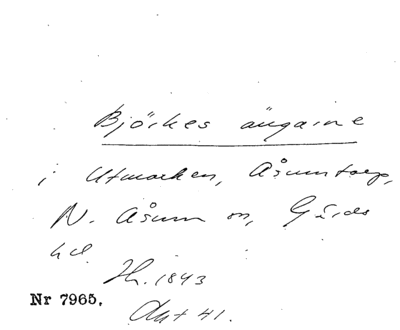 Björkes ängarne
i Utmarken, Åsumtorp,
N. Åsum sn, Gärds
hd
Th. 1843
Akt 41.
Nr 7965.